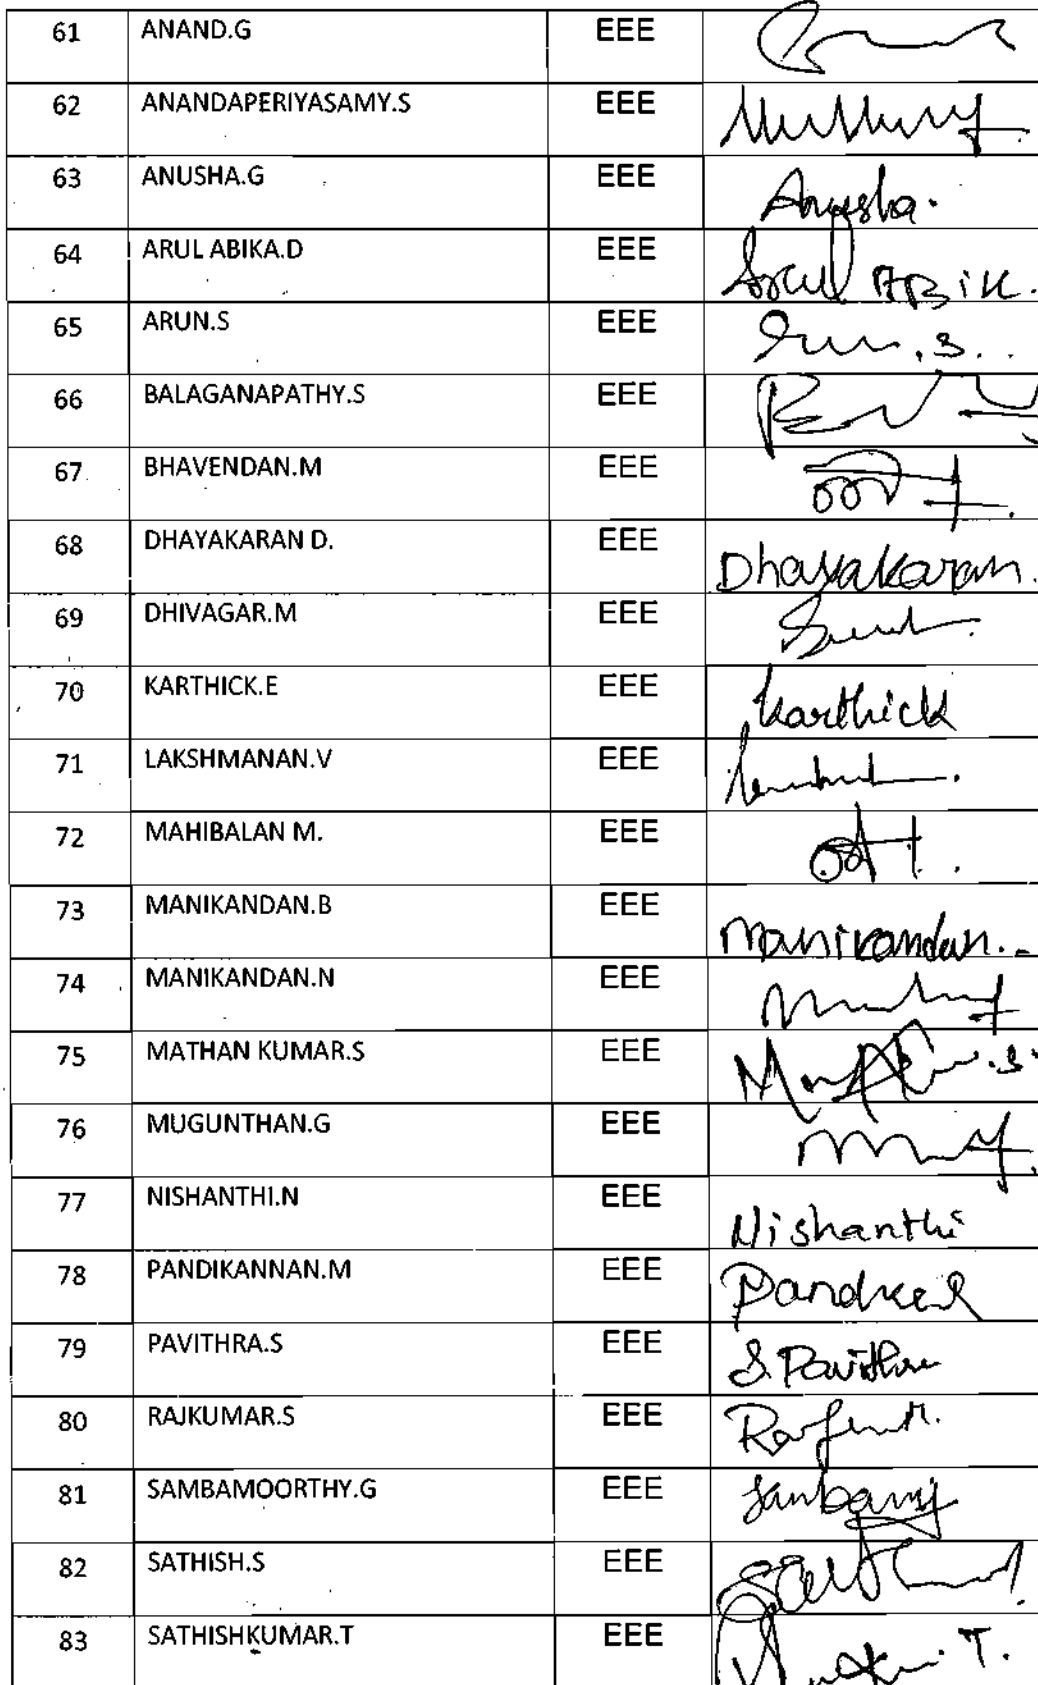 61 ANAND.G EEE
62 ANANDAPERIYASAMY.S EEE
63 ANUSHA.G EEE Anusha.
64 ARUL ABIKA.D EEE Arul ABiK.
65 ARUN.S EEE
66 BALAGANAPATHY.S EEE
67 BHAVENDAN.M EEE
68 DHAYAKARAN D. EEE Dhayakaran.
69 DHIVAGAR.M EEE
70 KARTHICK.E EEE Karthick
71 LAKSHMANAN.V EEE
72 MAHIBALAN M. EEE
73 MANIKANDAN.B EEE Manikandan.
74 MANIKANDAN.N EEE
75 MATHAN KUMAR.S EEE
76 MUGUNTHAN.G EEE
77 NISHANTHI.N EEE Nishanthi
78 PANDIKANNAN.M EEE
79 PAVITHRA.S EEE S. Pavithra
80 RAJKUMAR.S EEE
81 SAMBAMOORTHY.G EEE
82 SATHISH.S EEE
83 SATHISHKUMAR.T EEE